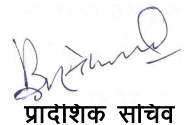 प्रादेशिक सचिव